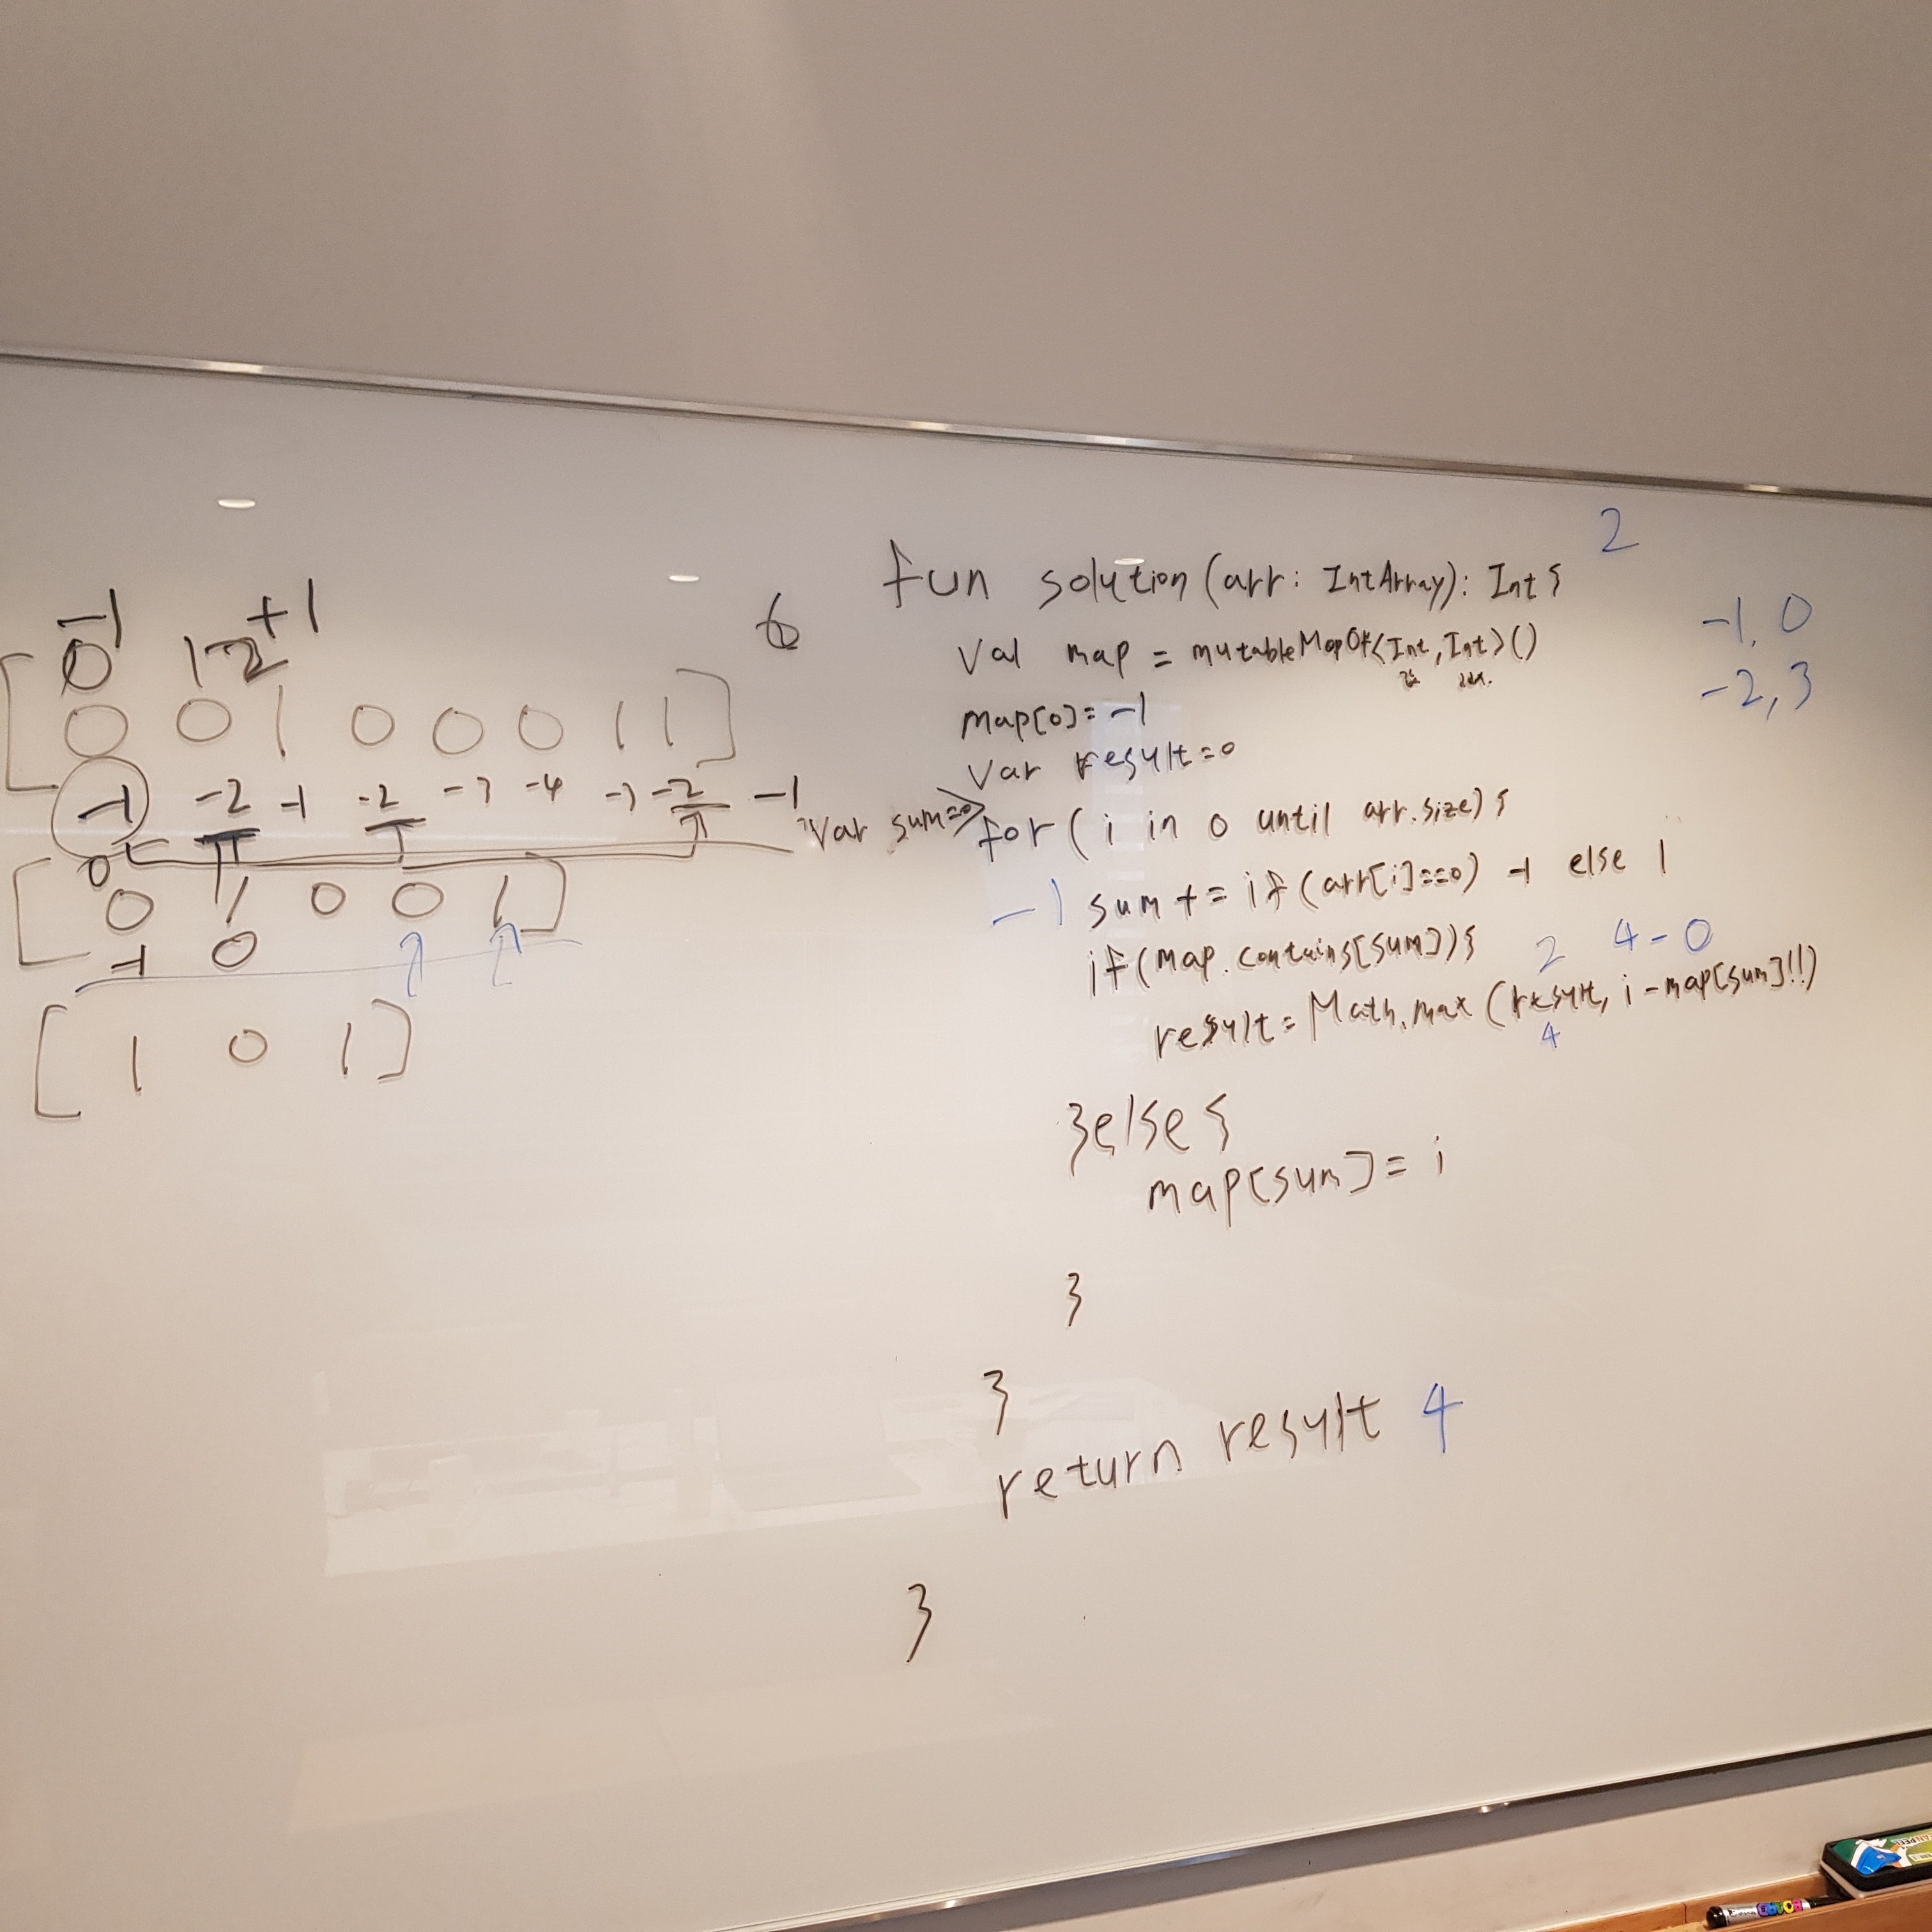 -1
0 1 2 +1
[ 0 0 1 0 0 0 1 1 ] 6
-1 -2 -1 -2 -3 -4 -3 -2 -1
0
[ 0 1 0 0 1 ]
-1 0
[ 1 0 1 ]
fun solution(arr: IntArray): Int {
val map = mutableMapOf<Int, Int>()
idx.
map[0] = -1
var result=0
var sum=0
for ( i in 0 until arr.size) {
-1 sum += if (arr[i]==0) -1 else 1
if(map.contains[sum]){
2 4-0
result = Math.max (result, i-map[sum]!!)
4
}else {
map[sum] = i
}
}
return result 4
}
2
-1, 0
-2, 3